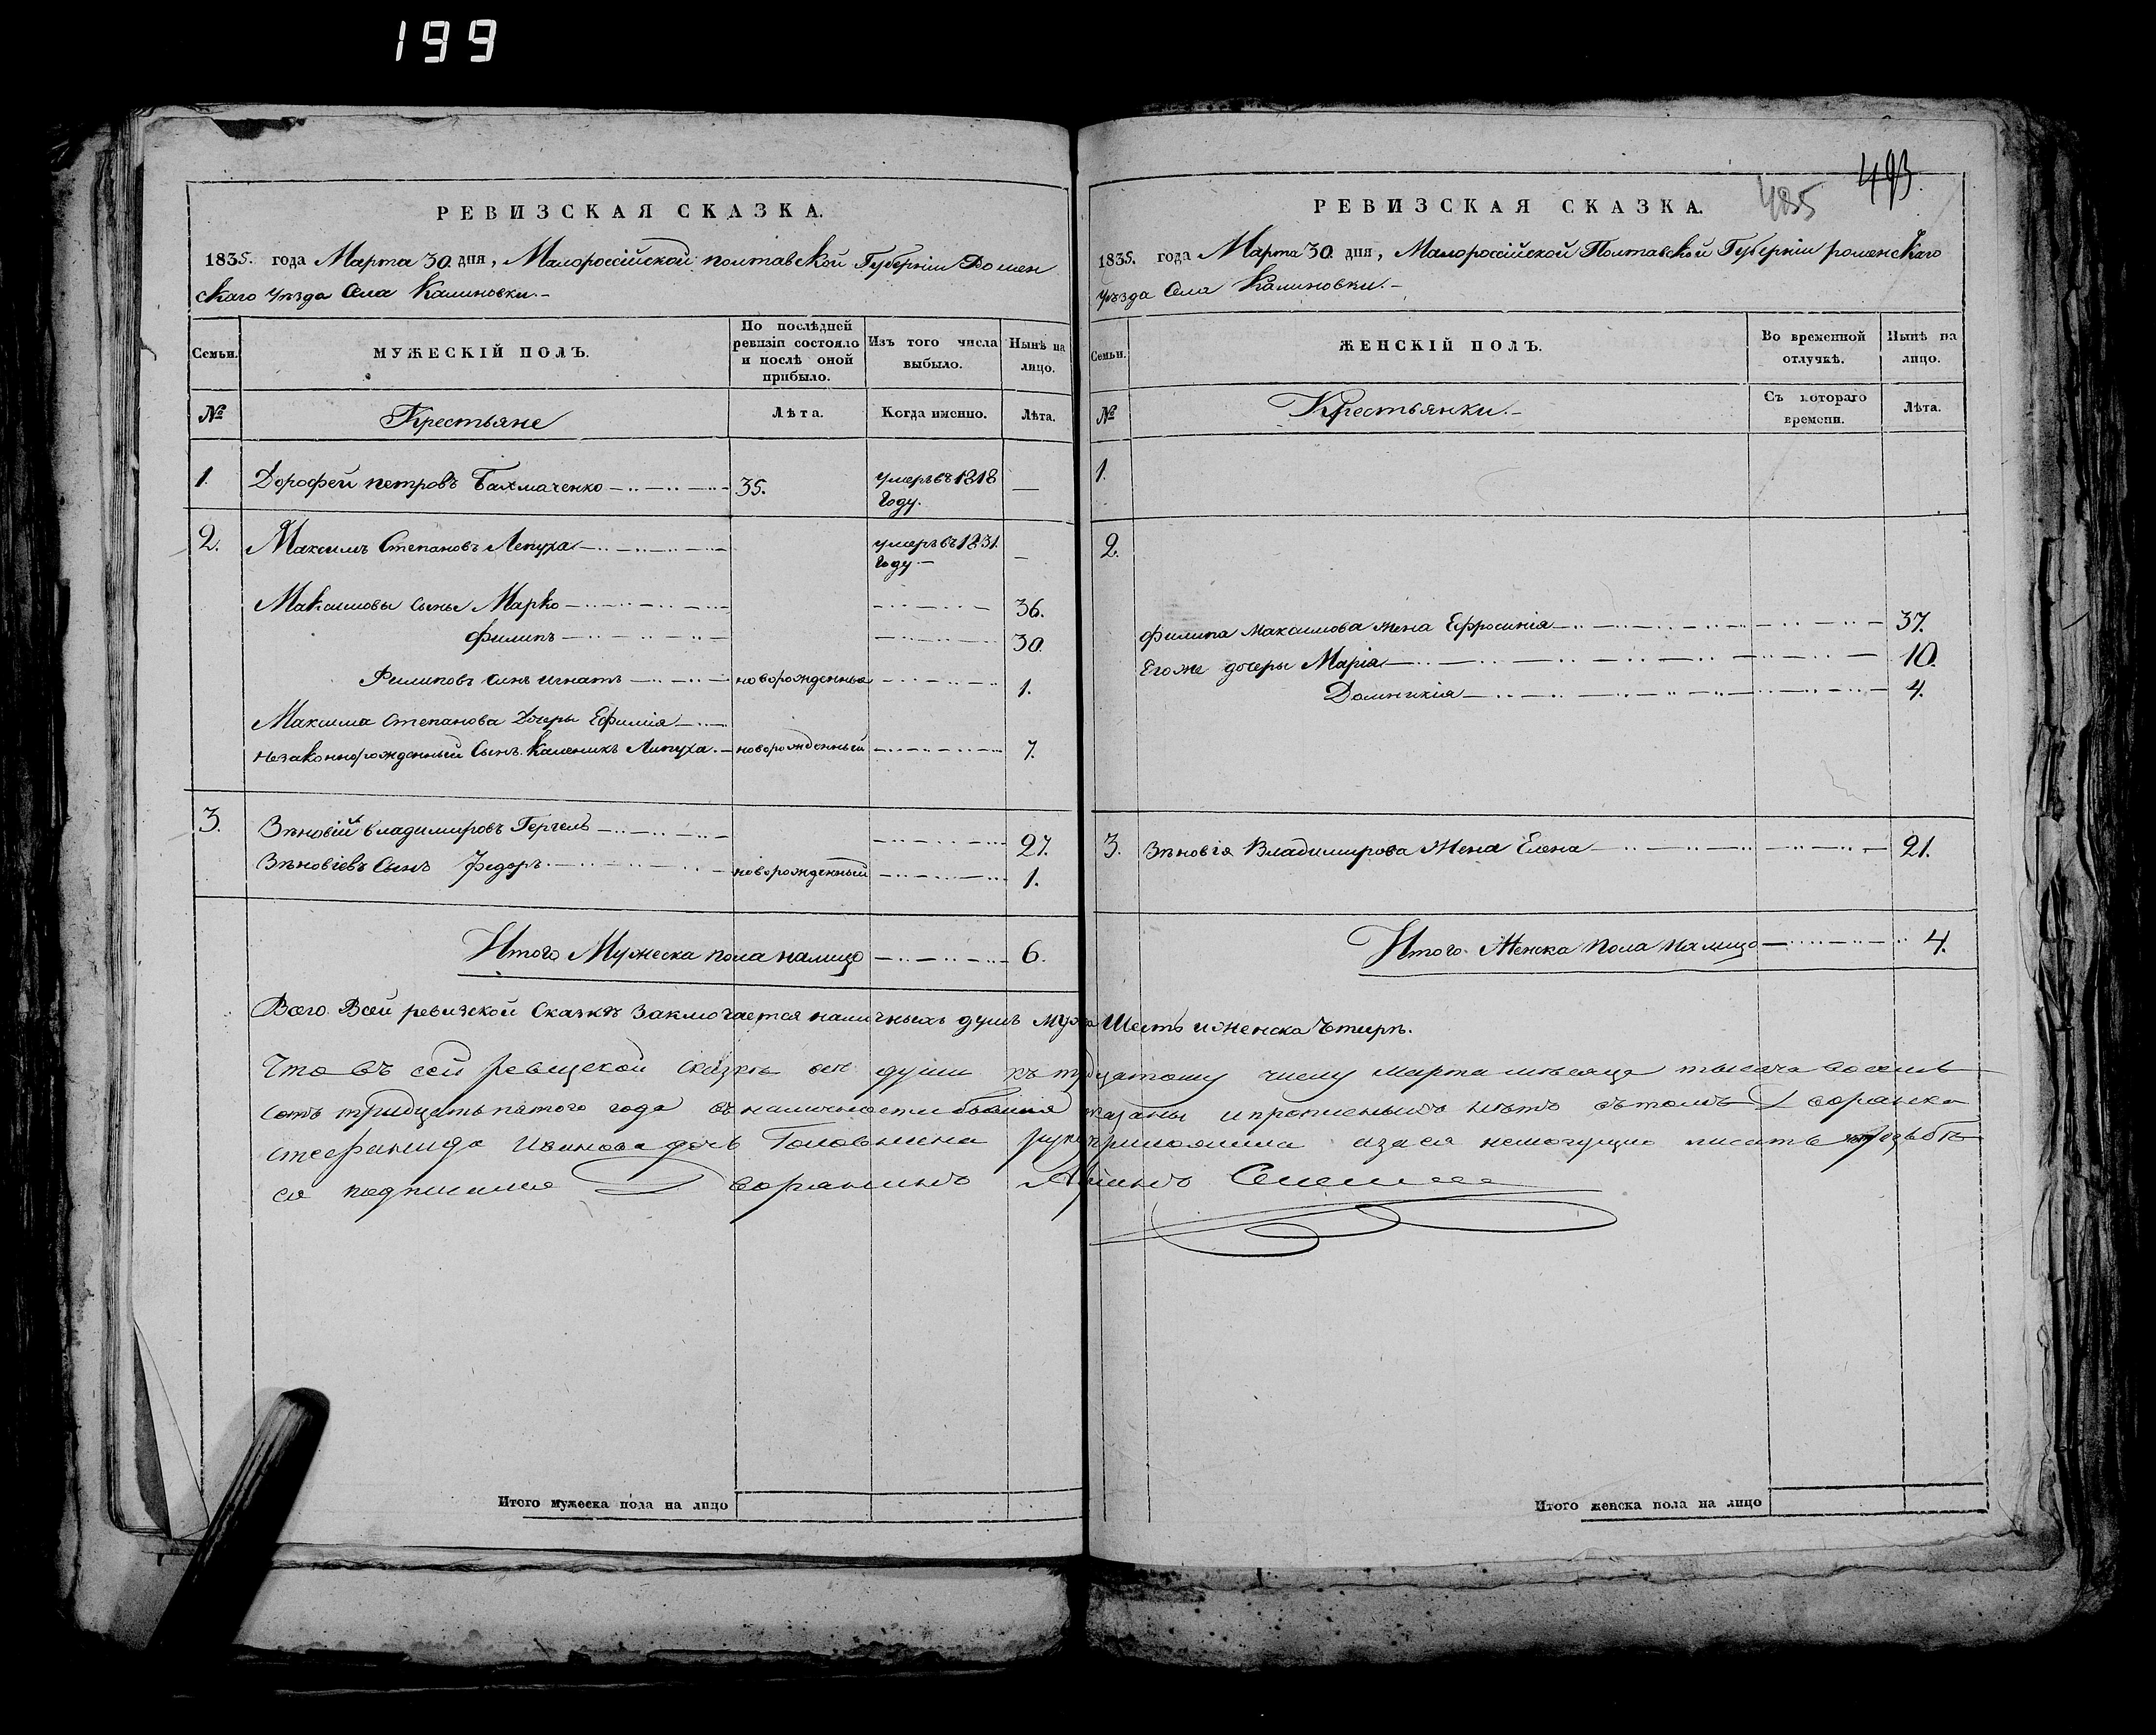 199
РЕВИЗСКАЯ СКАЗКА.
1835. года Марта 30. дня, Малороссійской полтавской Губерніи Ромен
скаго уѣзда Села Калиновки.-
Семьи.
МУЖЕСКІЙ ПОЛЪ.
По послѣдней
ревизіи состояло
и послѣ оной
прибыло.
Изъ того числа
выбыло.
Нынѣ на
лицо.
№
Крестьяне
Лѣта.
Когда именно.
Лѣта.
1. Дорофей петровъ Бахмаченко 35. умеръ въ 1818
Году. —
2. Максимъ Степановъ Лепуха умеръ въ 1831.
Году —
Максимовы Сыны Марко 36.
филипъ 30.
Филиповъ Синъ игнатъ новорожденны 1.
Максима Степанова Дочеры Ефимія
незаконнорожденный Сынъ Каленикъ Липуха. новорожденный 7.
3. Зѣновій владимировъ Гергель 27.
Зѣновіевъ Сынъ Федоръ новорожденный 1.
Итого Мужеска пола налицо 6.
РЕВИЗСКАЯ СКАЗКА.
485
493.
1835. года Марта 30. дня, Малороссійской Полтавской Губерніи роменскаго
уѣзда Села Калиновки.-
Семьи.
ЖЕНСКІЙ ПОЛЪ.
Во временной
отлучкѣ.
Нынѣ на
лицо.
№
Крестьянки.-
Съ котораго
времени.
Лѣта.
1.
2.
филипа Максимова жена Ефросинія 37.
Егоже дочеры Марія 10.
Домникія 4.
3. Зѣновія Владимирова Жена Елена 21.
Итого Женска Пола Налицо 4.
Всего Всей ревизской Сказкѣ заключается наличныхъ душъ Мужа Шесть и Женска Чтири.
Что въ сей ревизской сказкѣ все души къ тридцатому числу марта мѣсяца тысяча восемь
сотъ тридцать пятого года въ наличности показаны и прописныхъ нѣтъ въ томъ Дворянка
стефанида Иванова дочь Головнина руку приложила а за ея немогущую писать
ся подписался Дворянинъ
Итого мужеска пола на лицо
Итого женска пола на лицо